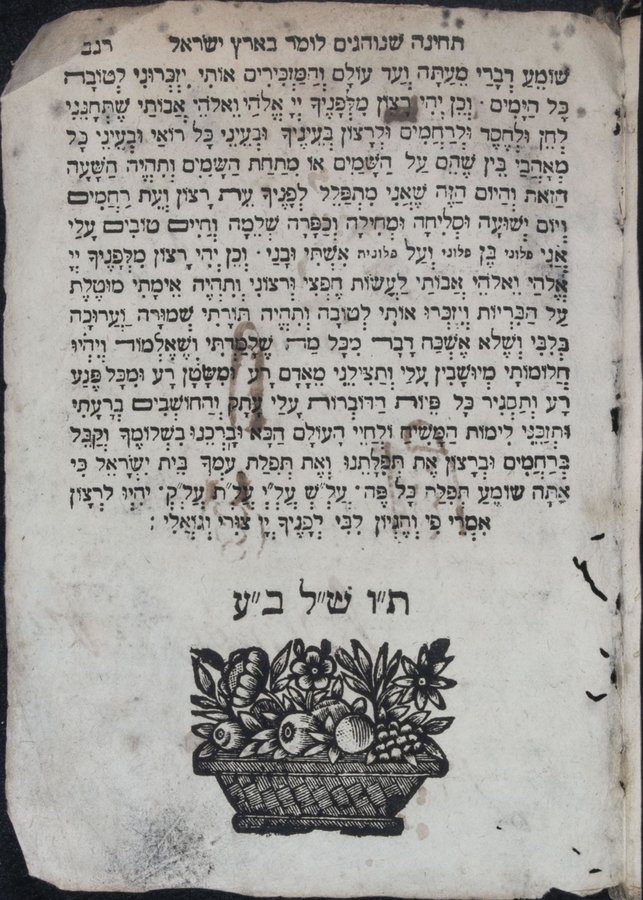 תחינה שנוהגים לומר בארץ ישראל רנב
שׁוֹמֵעַ דְּבָרַי מֵעַתָּה וְעַד עוֹלָם וְהַמַּזְכִּירִים אוֹתִי יִזְכְּרוּנִי לְטוֹבָה
כָּל הַיָּמִים · וְכֵן יְהִי רָצוֹן מִלְּפָנֶיךָ יְיָ אֱלֹהַי וֵאלֹהֵי אֲבוֹתַי שֶׁתְּחָנֵּנִי
לְחֵן וּלְחֶסֶד וּלְרַחֲמִים וּלְרָצוֹן בְּעֵינֶיךָ וּבְעֵינֵי כָּל רוֹאַי וּבְעֵינֵי כָּל
מְאַהֲבַי בֵּין שֶׁהֵם עַל הַשָּׁמַיִם אוֹ מִתַּחַת הַשָּׁמַיִם וְתִהְיֶה הַשָּׁעָה
הַזֹּאת וְהַיּוֹם הַזֶּה שֶׁאֲנִי מִתְפַּלֵּל לְפָנֶיךָ עֵת רָצוֹן וְעֵת רַחֲמִים
וְיוֹם יְשׁוּעָה וּסְלִיחָה וּמְחִילָה וְכַפָּרָה שְׁלֵמָה וְחַיִּים טוֹבִים עָלַי
אֲנִי פלוני בֶּן פלוני וְעַל פלונית אִשְׁתִּי וּבָנַי · וְכֵן יְהִי רָצוֹן מִלְּפָנֶיךָ יְיָ
אֱלֹהַי וֵאלֹהֵי אֲבוֹתַי לַעֲשׂוֹת חֶפְצִי וּרְצוֹנִי וְתִהְיֶה אֵימָתִי מוּטֶּלֶת
עַל הַבְּרִיּוֹת וְיִזְכְּרוּ אוֹתִי לְטוֹבָה וְתִהְיֶה תּוֹרָתִי שְׁמוּרָה וַעֲרוּכָה
בְּלִבִּי וְשֶׁלֹּא אֶשְׁכַּח דָּבָר מִכָּל מַה שֶּׁלָּמַדְתִּי וְשֶׁאֶלְמוֹד וְיִהְיוּ
חֲלוֹמוֹתַי מְיוּשָּׁבִין עָלַי וְתַצִּילֵנִי מֵאָדָם רָע וּמִשָּׂטָן רָע וּמִכָּל פֶּגַע
רָע וְתַסְגִּיר כָּל פִּיּוֹת הַדּוֹבְרוֹת עָלַי עָתָק וְהַחוֹשְׁבִים בְּרָעָתִי
וּתְזַכֵּנִי לִימוֹת הַמָּשִׁיחַ וּלְחַיֵּי הָעוֹלָם הַבָּא וּבָרְכֵנוּ בִּשְׁלוֹמֶךָ וְקַבֵּל
בְּרַחֲמִים וּבְרָצוֹן אֶת תְּפִלָּתֵנוּ וְאֶת תְּפִלַּת עַמְּךָ בֵּית יִשְׂרָאֵל כִּי
אַתָּה שׁוֹמֵעַ תְּפִלַּת כָּל פֶּה · יִהְיוּ לְרָצוֹן
אִמְרֵי פִי וְהֶגְיוֹן לִבִּי לְפָנֶיךָ יְיָ צוּרִי וְגוֹאֲלִי :
ת"ו ש"ל ב"ע